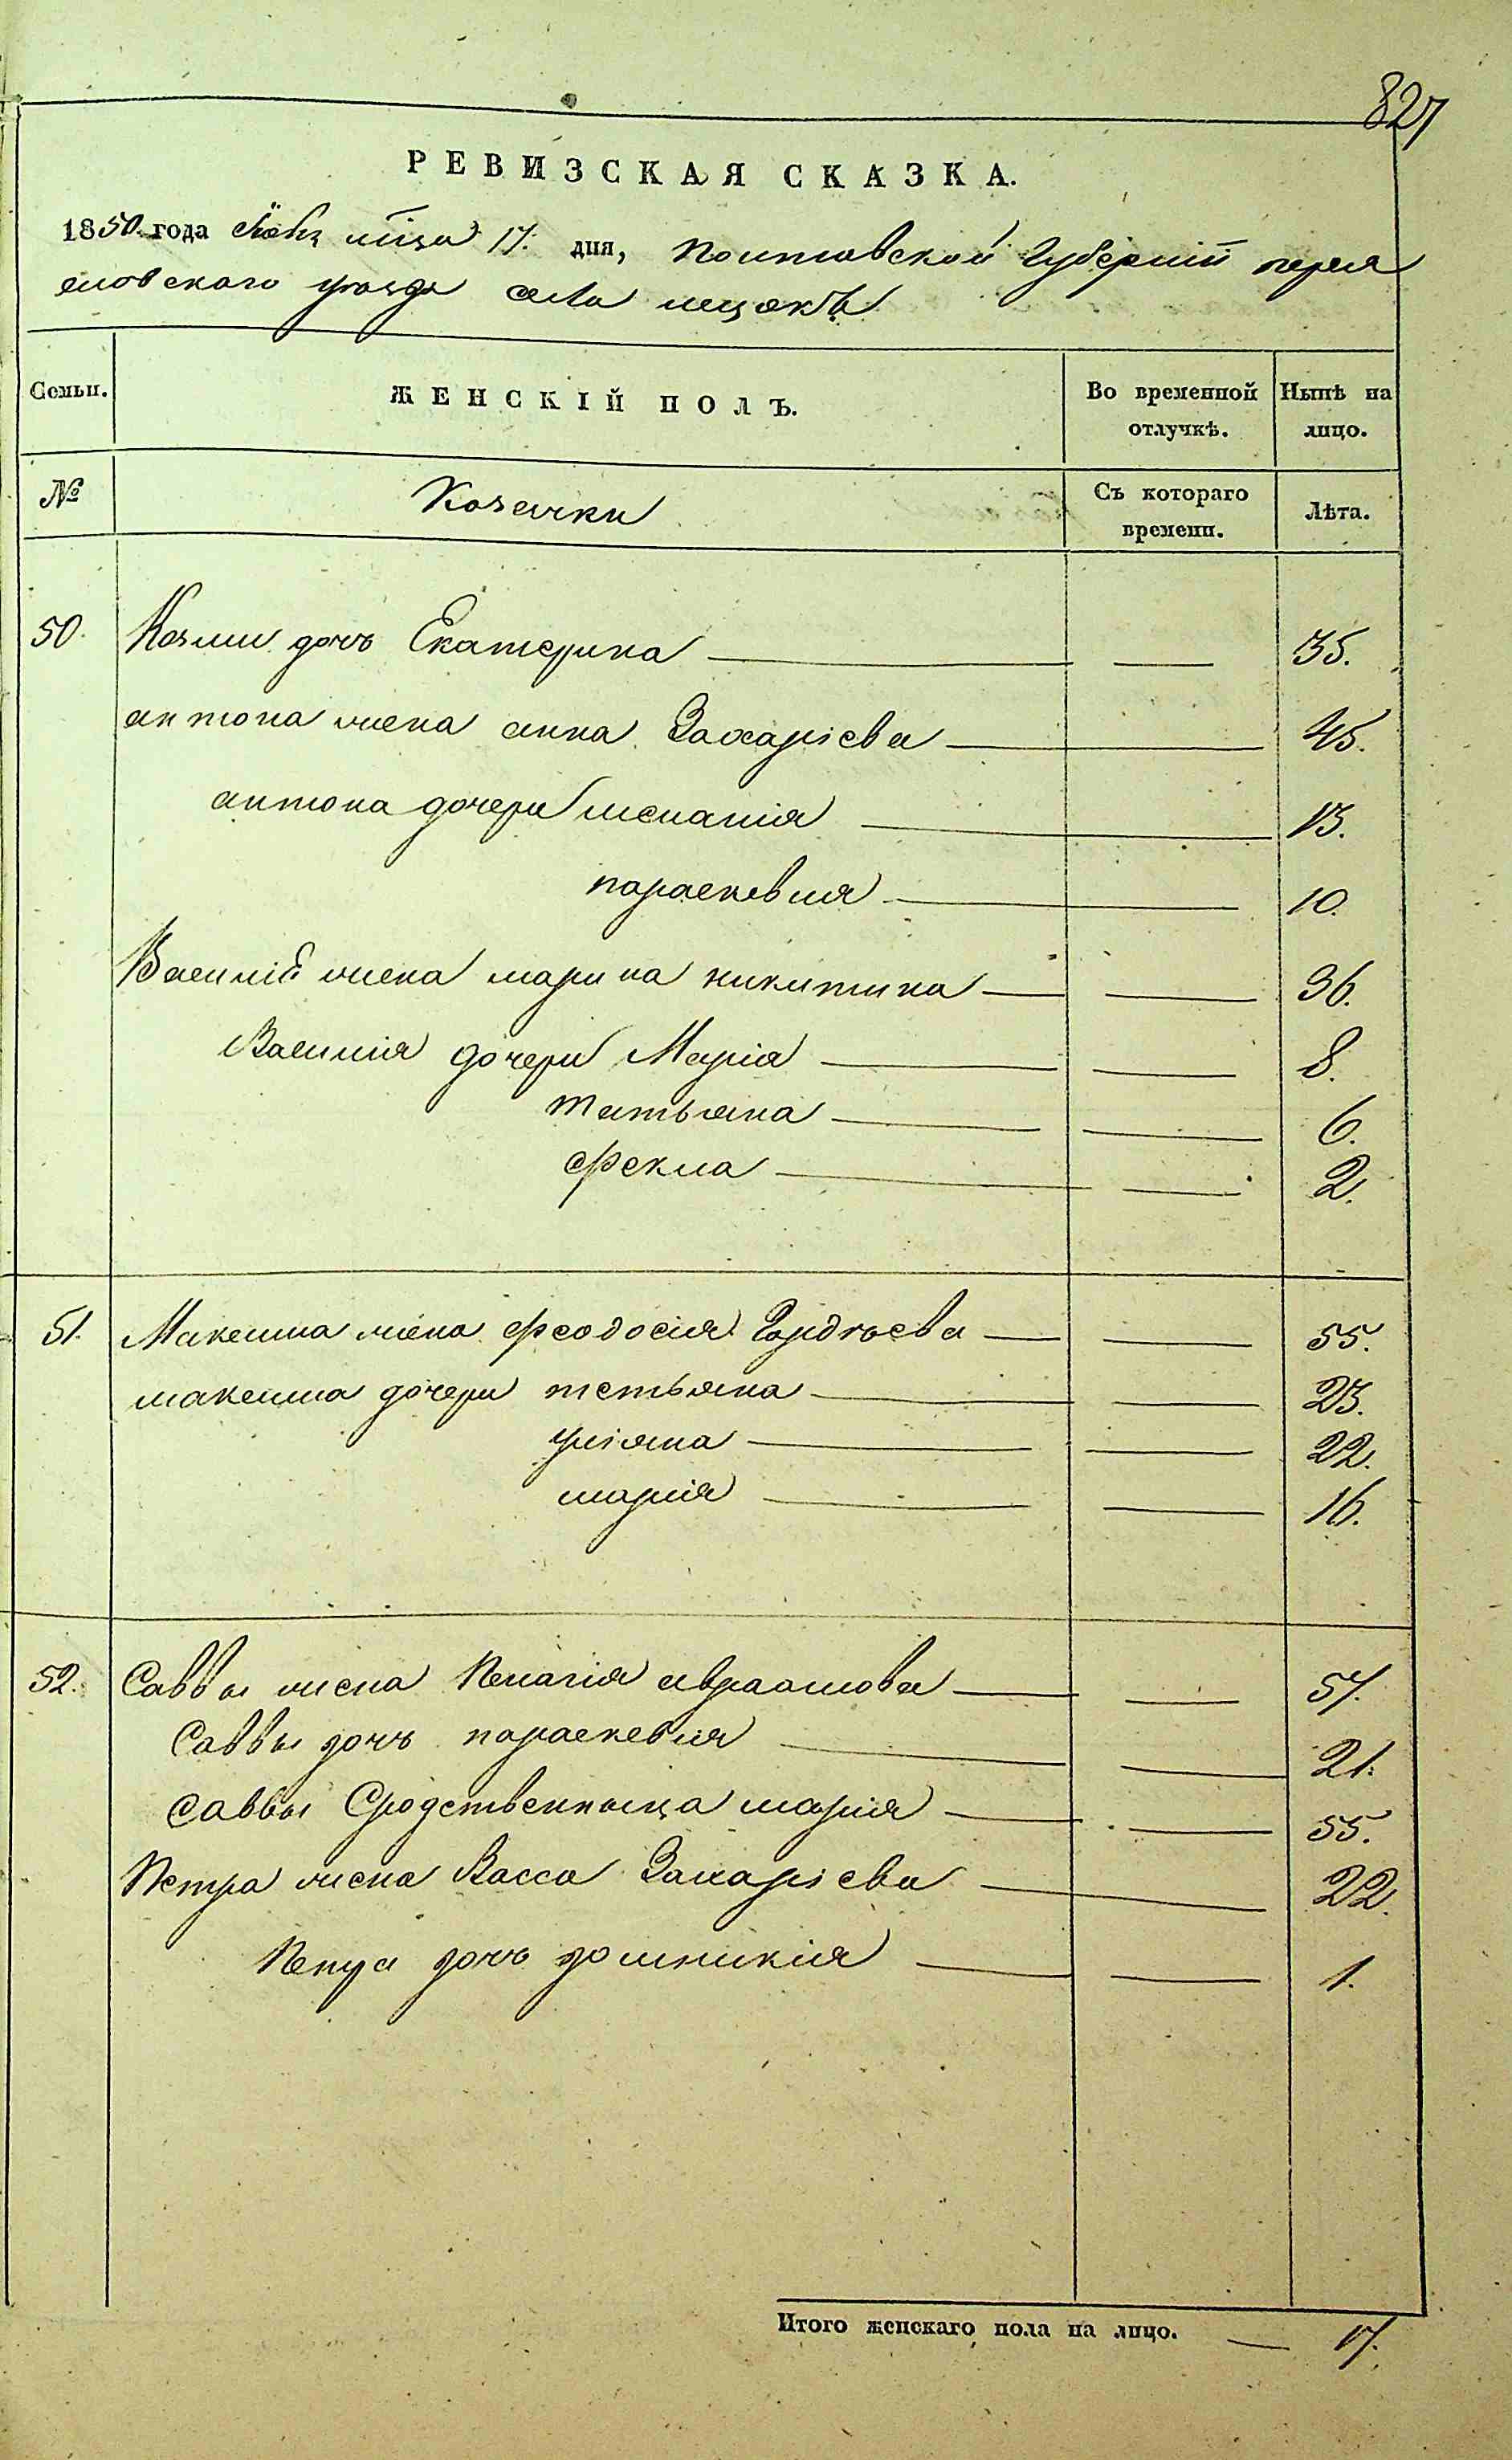 827
РЕВИЗСКАЯ СКАЗКА.
1850 года мсца 17. дня, Полтавской Губерніи перея
словскаго уезда села
Семьи. ЖЕНСКІЙ ПОЛЪ. Во временной отлучкѣ. Нынѣ на лицо.
№ Козачки Съ котораго времени. Лѣта.
50. Козми дочь Екатерина 35.
антона жена анна Захаріева 45.
антона дочери меланія 13.
параскевия 10.
Василій жена марина никитина 36.
Василія дочери Марія 8.
татьяна 6.
Фекла 2.
51. Максима жена феодосія Гордѣева 55.
максима дочери тетьяна 23.
уліяна 22.
марія 16.
52. Саввы жена Пелагія авраамова 57.
Саввы дочь параскевія 21.
Саввы Сродственныца марія 55.
Петра жена Васса Захаріева 22.
Петра дочь домникія 1.
Итого женскаго пола на лицо. — 17.